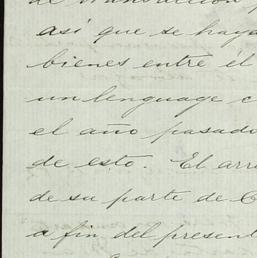 de transacción
así que se haya
bienes entre él
un lenguage c
el año pasado
de esto. El arr
de su parte de C
a fin del present